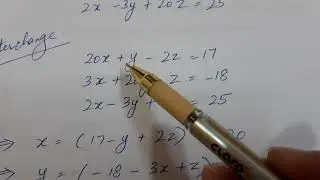 2x - 3y + 20z = 25
terchange
20x + y - 2z = 17
3x + 20 - z = -18
2x - 3y + = 25
⇒ x = (17 - y + 2z) 20
⇒ y = (-18 - 3x + z)